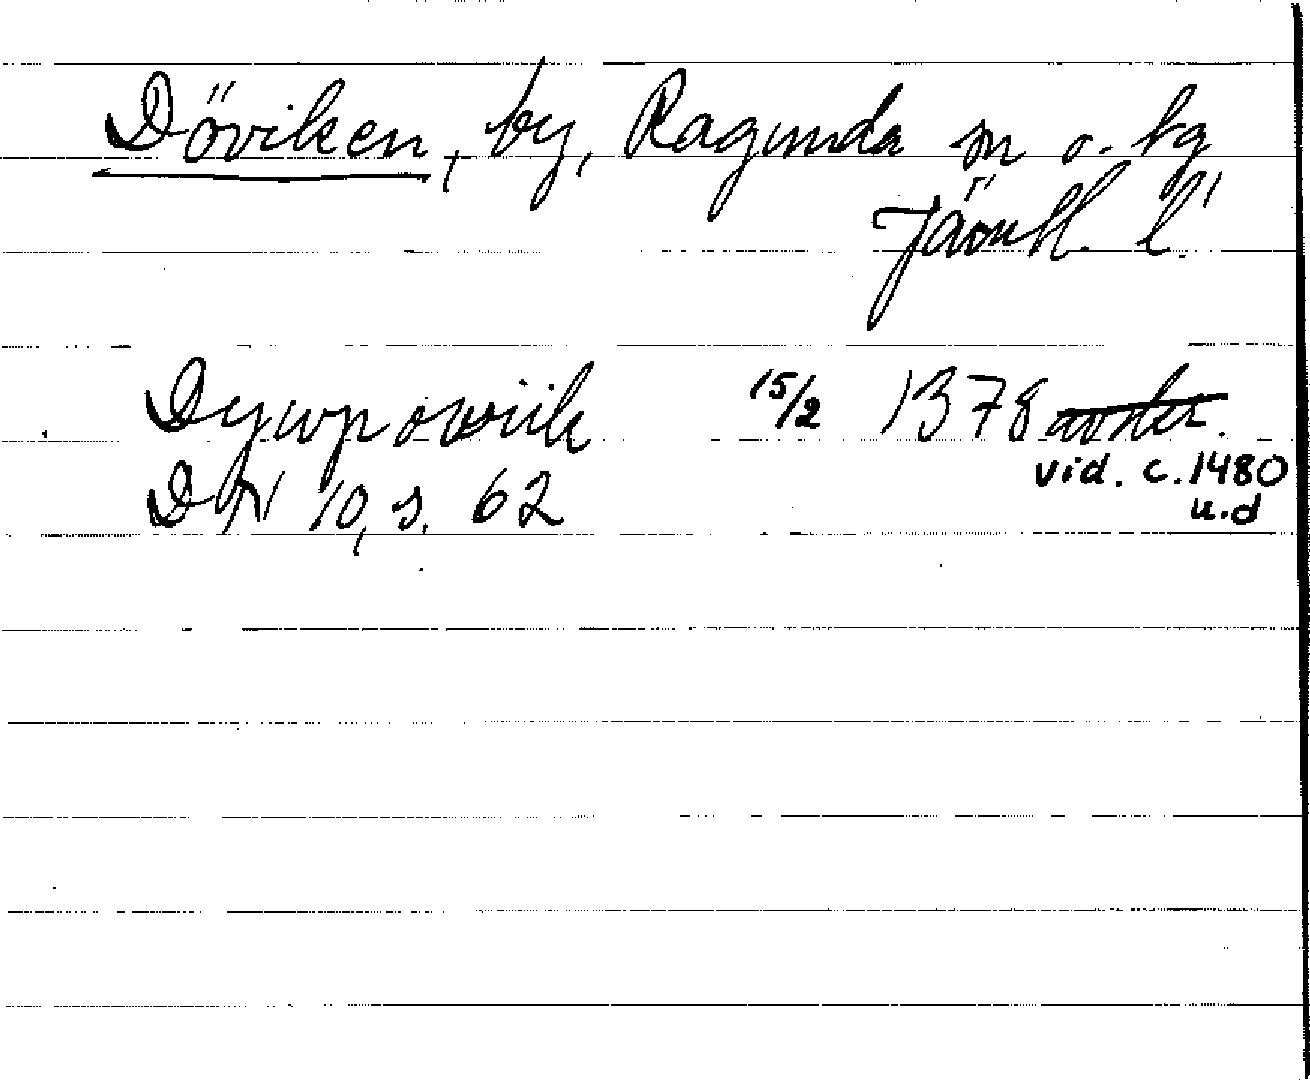 Döviken, by, Ragunda sn o. tg
Jämtl. l.
Dywpowiik 15/2 1378 avskr.
vid. c. 1480
u.d
DN 10, s. 62